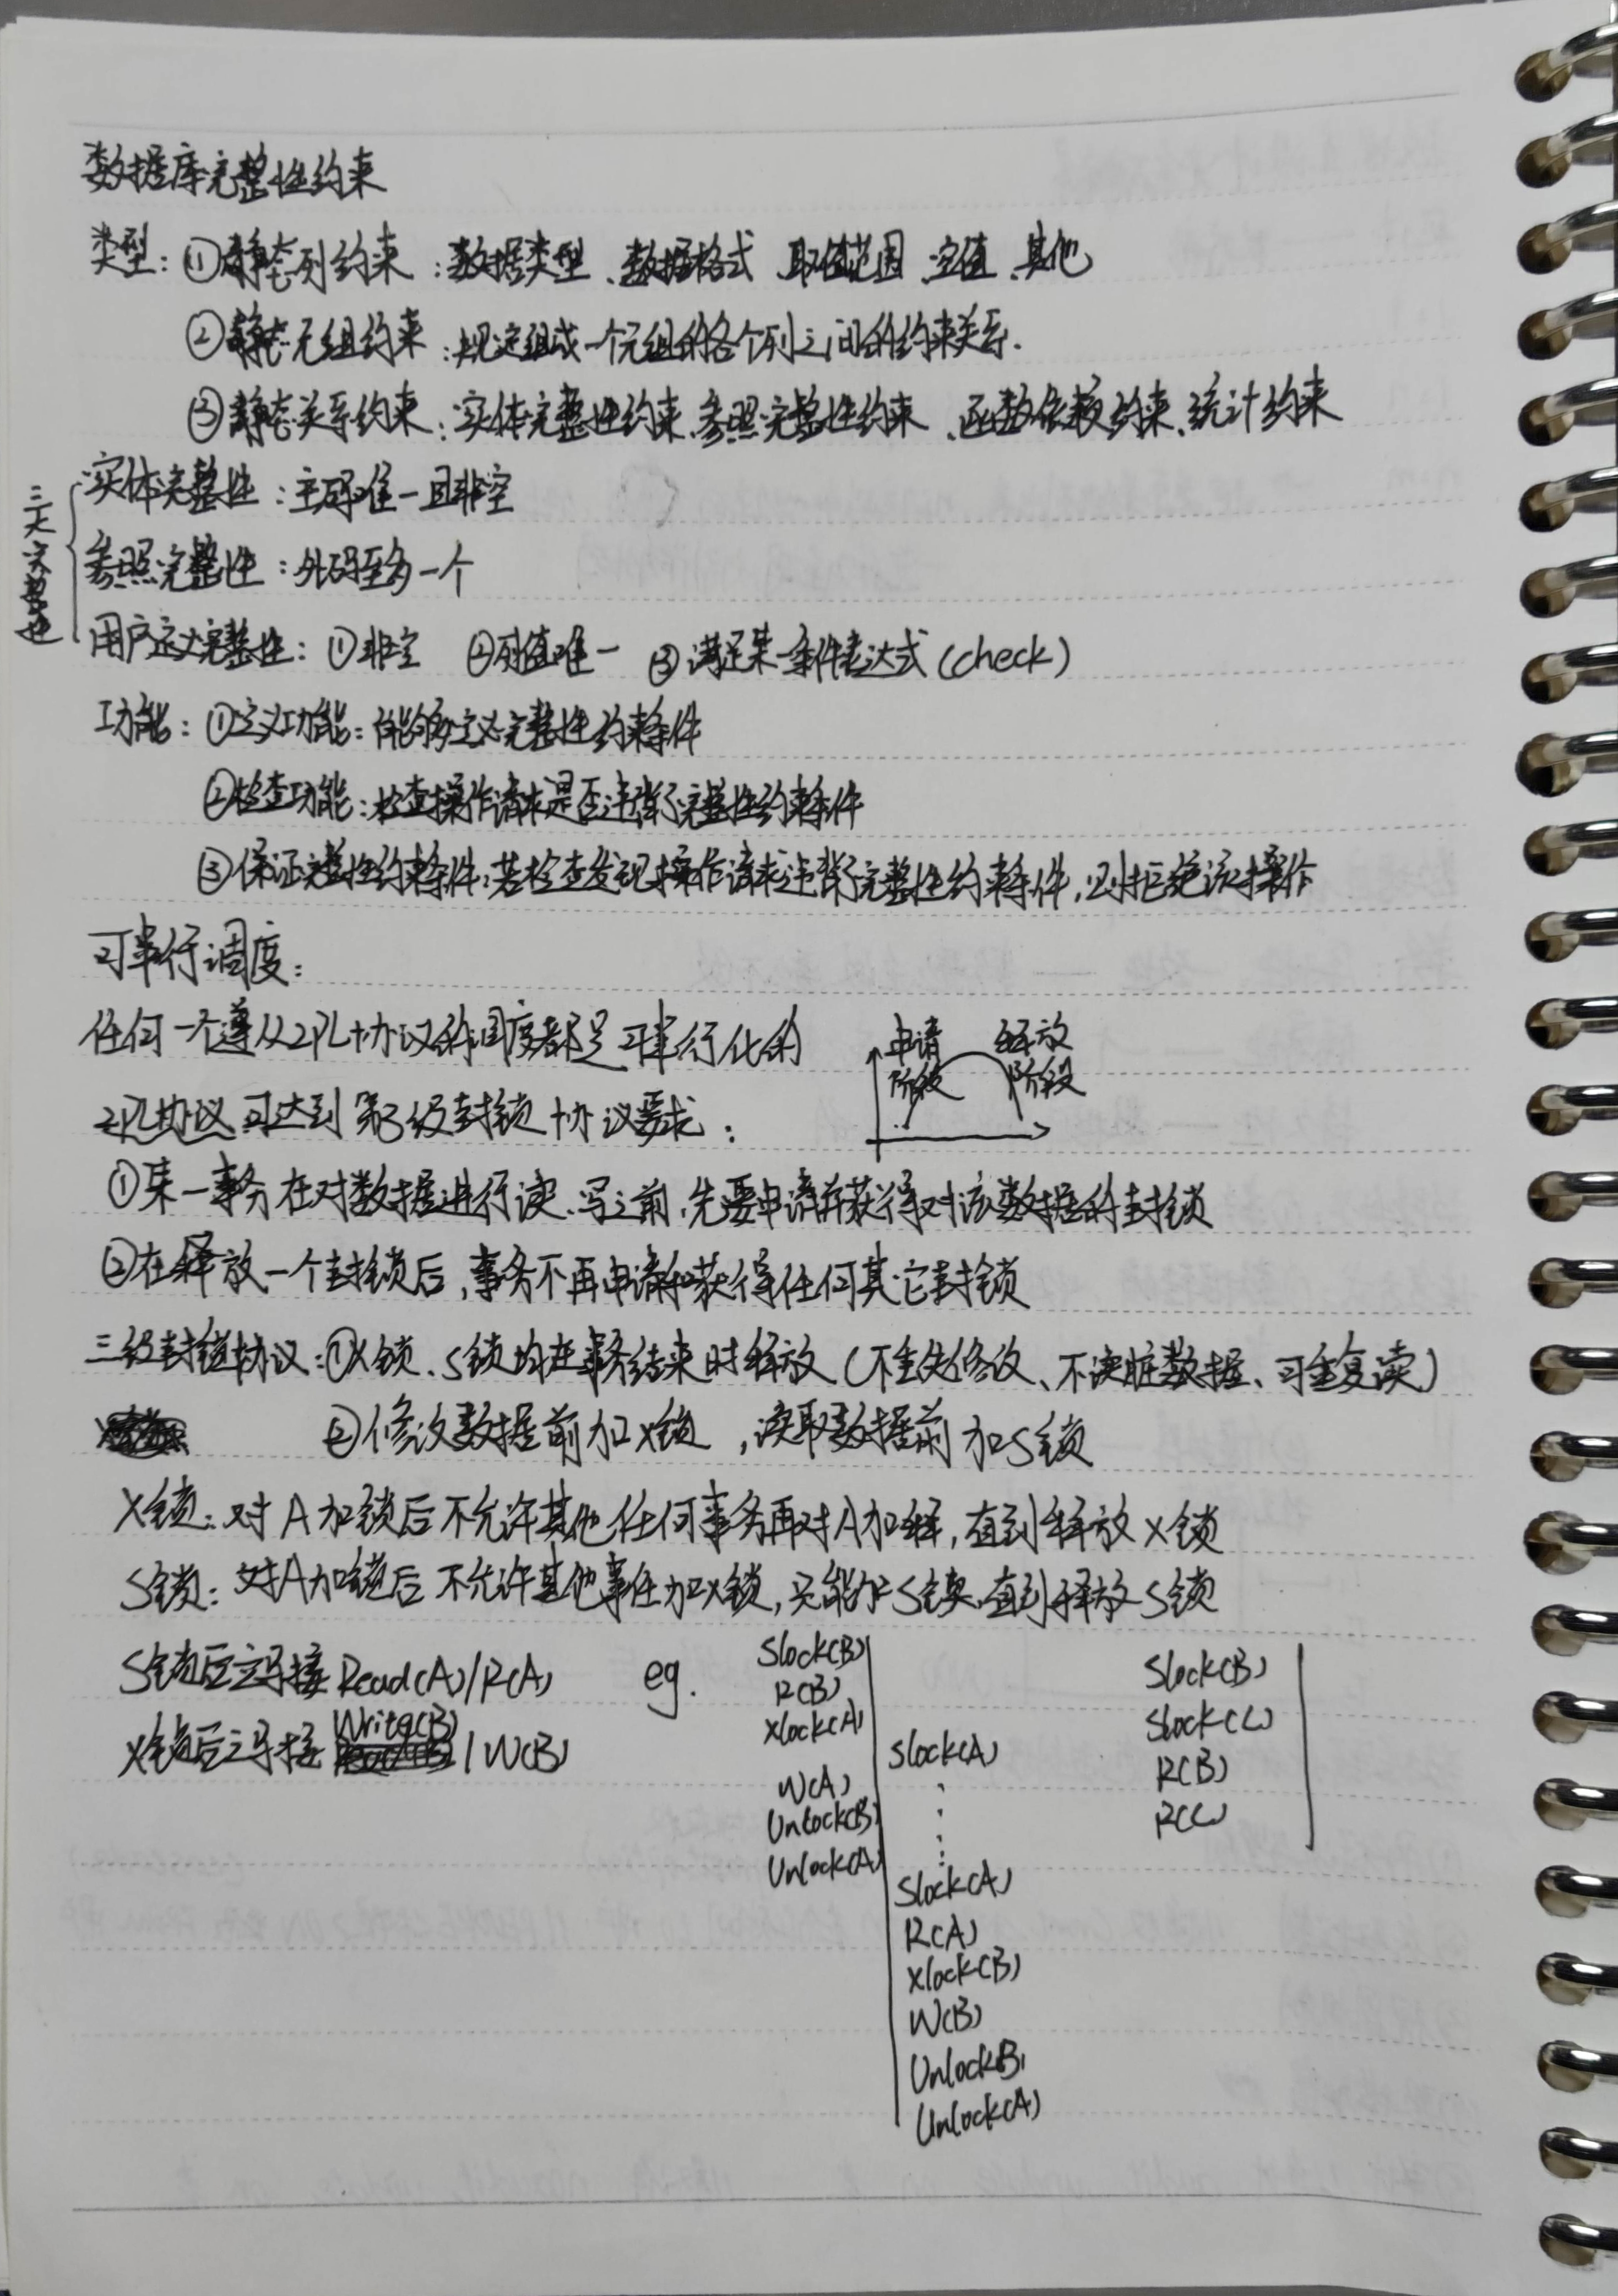 数据库完整性约束
类型：①静态列约束：数据类型、数据格式、取值范围、空值、其他
②静态元组约束：规定组成一个元组的各个列之间的约束关系.
③静态关系约束：实体完整性约束、参照完整性约束、函数依赖约束、统计约束
三大完整性
实体完整性：主码唯一且非空
参照完整性：外码至多一个
用户定义完整性：①非空 ②列值唯一 ③满足某一条件表达式(check)
功能：①定义功能：能够定义完整性约束条件
②检查功能：检查操作请求是否违背了完整性约束条件
③保证完整性约束条件：若检查发现操作请求违背了完整性约束条件，则拒绝该操作
可串行调度：
任何一个遵从2PL协议的调度都是可串行化的
申请阶段 释放阶段
2PL协议可达到第3级封锁协议要求：
①某一事务在对数据进行读、写之前，先要申请并获得对该数据的封锁
②在释放一个封锁后，事务不再申请和获得任何其它封锁
三级封锁协议：①X锁、S锁均在事务结束时释放(不丢失修改、不读脏数据、可重复读)
②修改数据前加X锁，读取数据前加S锁
X锁：对A加锁后不允许其他任何事务再对A加锁，直到释放X锁
S锁：对A加锁后不允许其他事任加X锁，只能加S锁，直到释放S锁
S锁后立马接Read(A)/R(A)
X锁后立马接Write(B)/W(B)
eg.
Slock(B)
R(B)
Xlock(A)
W(A)
Unlock(B)
Unlock(A)
Slock(A)
⋮
Slock(A)
R(A)
Xlock(B)
W(B)
Unlock(B)
Unlock(A)
Slock(B)
Slock(C)
R(B)
R(C)